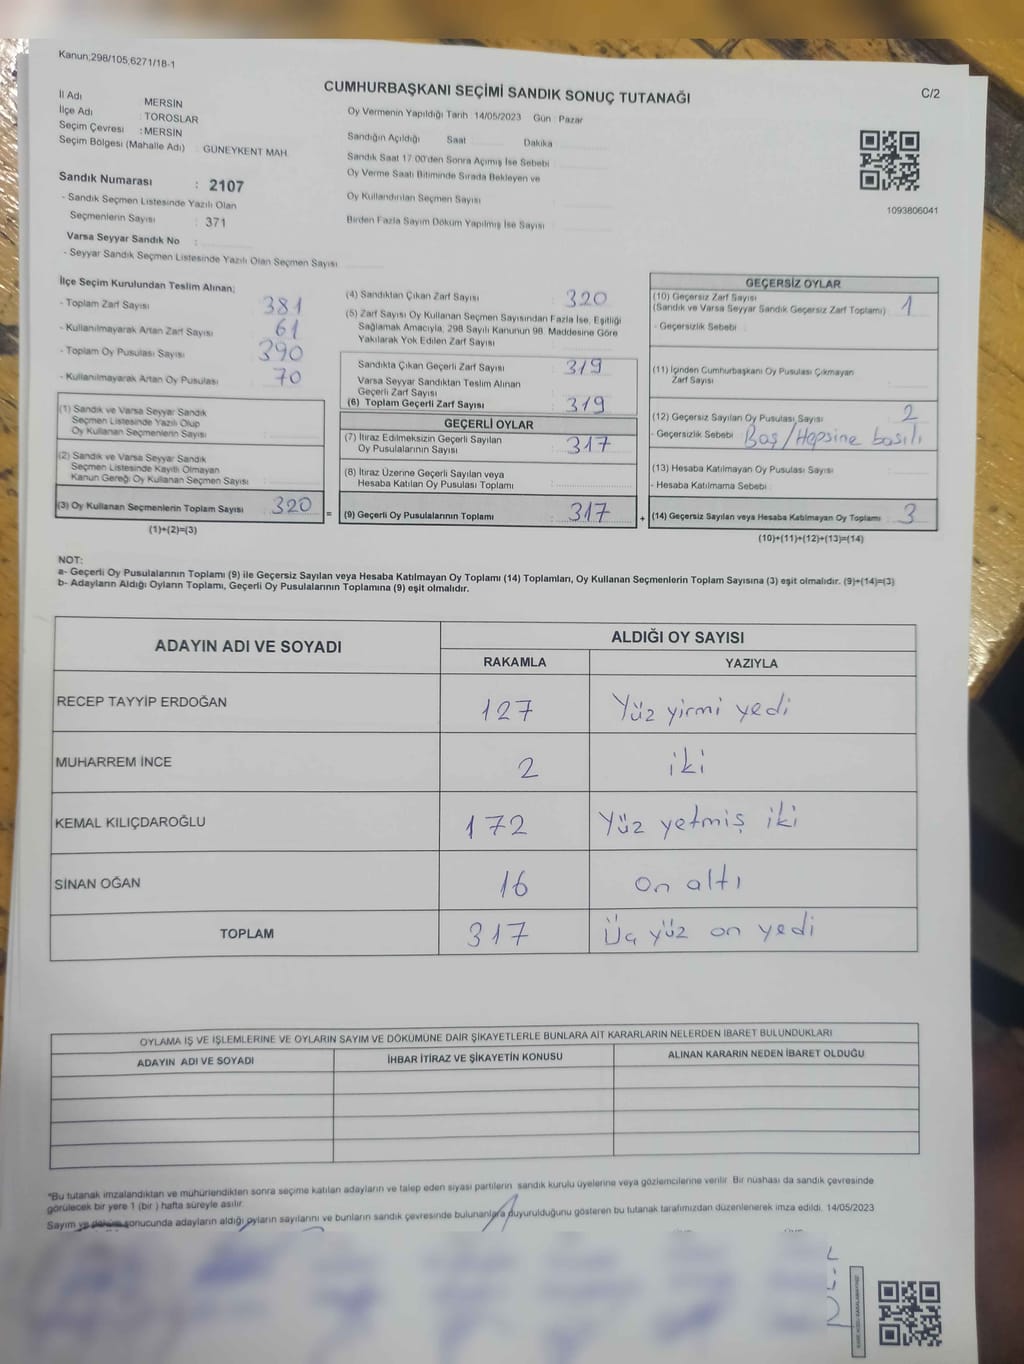 Kanun;298/105,6271/18-1
CUMHURBAŞKANI SEÇİMİ SANDIK SONUÇ TUTANAĞI
C/2
İl Adı MERSİN
İlçe Adı : TOROSLAR
Seçim Çevresi : MERSİN
Seçim Bölgesi (Mahalle Adı) GÜNEYKENT MAH.
Oy Vermenin Yapıldığı Tarih : 14/05/2023 Gün : Pazar
Sandığın Açıldığı Saat Dakika
Sandık Saat 17:00'den Sonra Açılmış İse Sebebi
Oy Verme Saati Bitiminde Sırada Bekleyen ve
Oy Kullandırılan Seçmen Sayısı
Birden Fazla Sayım Döküm Yapılmış İse Sayısı
1093806041
Sandık Numarası : 2107
- Sandık Seçmen Listesinde Yazılı Olan
Seçmenlerin Sayısı : 371
Varsa Seyyar Sandık No :
- Seyyar Sandık Seçmen Listesinde Yazılı Olan Seçmen Sayısı
İlçe Seçim Kurulundan Teslim Alınan;
- Toplam Zarf Sayısı 381
- Kullanılmayarak Artan Zarf Sayısı 61
- Toplam Oy Pusulası Sayısı 390
- Kullanılmayarak Artan Oy Pusulası 70
(1) Sandık ve Varsa Seyyar Sandık
Seçmen Listesinde Yazılı Olup
Oy Kullanan Seçmenlerin Sayısı
(2) Sandık ve Varsa Seyyar Sandık
Seçmen Listesinde Kayıtlı Olmayan
Kanun Gereği Oy Kullanan Seçmen Sayısı
(3) Oy Kullanan Seçmenlerin Toplam Sayısı 320
(1)+(2)=(3)
=
(4) Sandıktan Çıkan Zarf Sayısı 320
(5) Zarf Sayısı Oy Kullanan Seçmen Sayısından Fazla İse, Eşitliği
Sağlamak Amacıyla, 298 Sayılı Kanunun 98. Maddesine Göre
Yakılarak Yok Edilen Zarf Sayısı
Sandıkta Çıkan Geçerli Zarf Sayısı 319
Varsa Seyyar Sandıktan Teslim Alınan
Geçerli Zarf Sayısı
(6) Toplam Geçerli Zarf Sayısı 319
GEÇERLİ OYLAR
(7) İtiraz Edilmeksizin Geçerli Sayılan
Oy Pusulalarının Sayısı 317
(8) İtiraz Üzerine Geçerli Sayılan veya
Hesaba Katılan Oy Pusulası Toplamı
(9) Geçerli Oy Pusulalarının Toplamı 317
+
GEÇERSİZ OYLAR
(10) Geçersiz Zarf Sayısı 1
(Sandık ve Varsa Seyyar Sandık Geçersiz Zarf Toplamı)
- Geçersizlik Sebebi
(11) İçinden Cumhurbaşkanı Oy Pusulası Çıkmayan
Zarf Sayısı
(12) Geçersiz Sayılan Oy Pusulası Sayısı 2
- Geçersizlik Sebebi Boş/Hepsine basılı
(13) Hesaba Katılmayan Oy Pusulası Sayısı
- Hesaba Katılmama Sebebi
(14) Geçersiz Sayılan veya Hesaba Katılmayan Oy Toplamı 3
(10)+(11)+(12)+(13)=(14)
NOT:
a- Geçerli Oy Pusulalarının Toplamı (9) ile Geçersiz Sayılan veya Hesaba Katılmayan Oy Toplamı (14) Toplamları, Oy Kullanan Seçmenlerin Toplam Sayısına (3) eşit olmalıdır. (9)+(14)=(3)
b- Adayların Aldığı Oyların Toplamı, Geçerli Oy Pusulalarının Toplamına (9) eşit olmalıdır.
ADAYIN ADI VE SOYADI ALDIĞI OY SAYISI
RAKAMLA YAZIYLA
RECEP TAYYİP ERDOĞAN 127 Yüz yirmi yedi
MUHARREM İNCE 2 iki
KEMAL KILIÇDAROĞLU 172 Yüz yetmiş iki
SİNAN OĞAN 16 On altı
TOPLAM 317 Üç yüz on yedi
OYLAMA İŞ VE İŞLEMLERİNE VE OYLARIN SAYIM VE DÖKÜMÜNE DAİR ŞİKAYETLERLE BUNLARA AİT KARARLARIN NELERDEN İBARET BULUNDUKLARI
ADAYIN ADI VE SOYADI İHBAR İTİRAZ VE ŞİKAYETİN KONUSU ALINAN KARARIN NEDEN İBARET OLDUĞU
*Bu tutanak imzalandıktan ve mühürlendikten sonra seçime katılan adayların ve talep eden siyasi partilerin sandık kurulu üyelerine veya gözlemcilerine verilir. Bir nüshası da sandık çevresinde
görülecek bir yere 1 (bir ) hafta süreyle asılır.
Sayım ve döküm sonucunda adayların aldığı oyların sayılarını ve bunların sandık çevresinde bulunanlara duyurulduğunu gösteren bu tutanak tarafımızdan düzenlenerek imza edildi. 14/05/2023